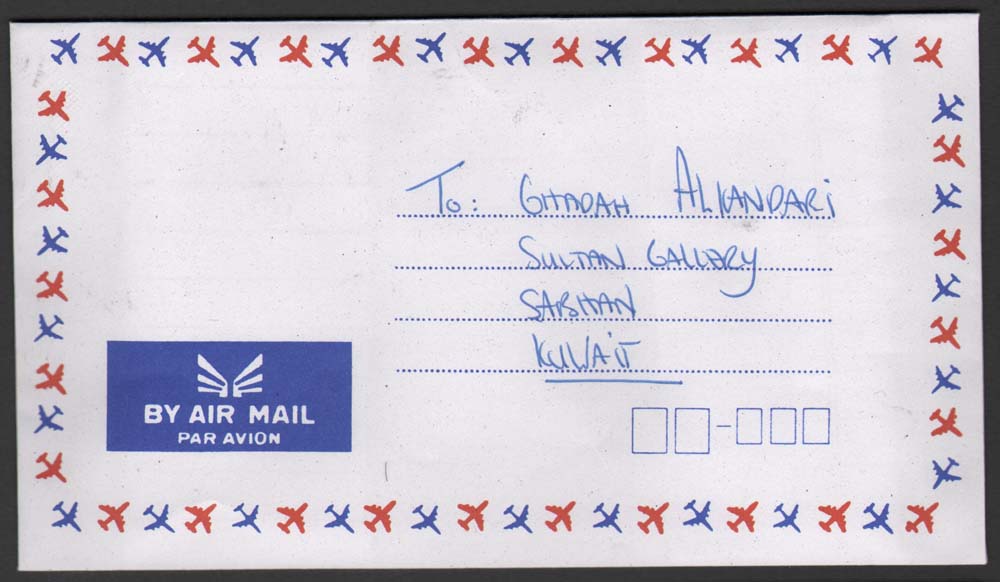 To: GHADAH ALKANDARi
SULTAN GALLERY
SABHAN
KUWAiT
BY AIR MAIL
PAR AVION